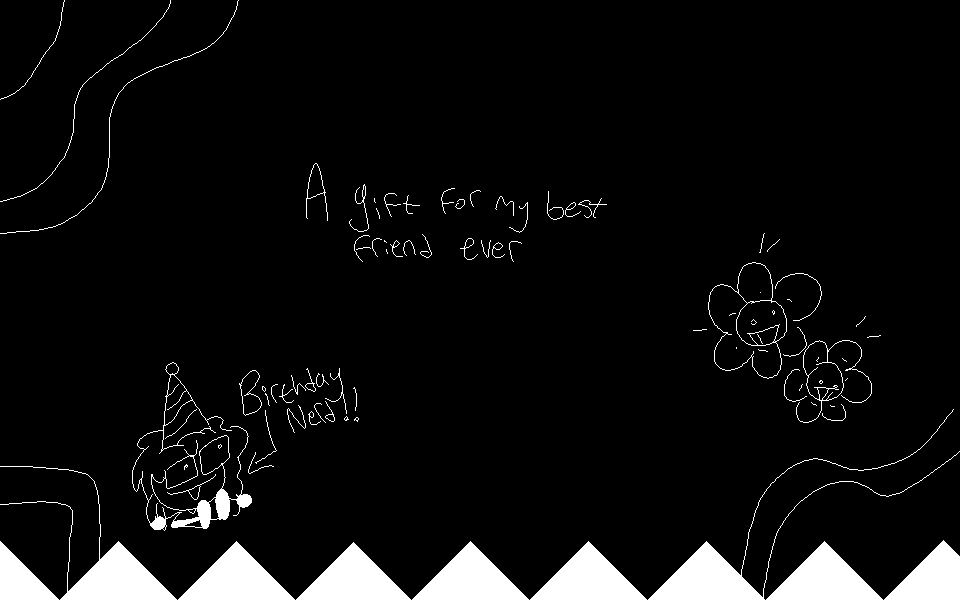 A gift for my best
friend ever
Birthday
Nerd!!